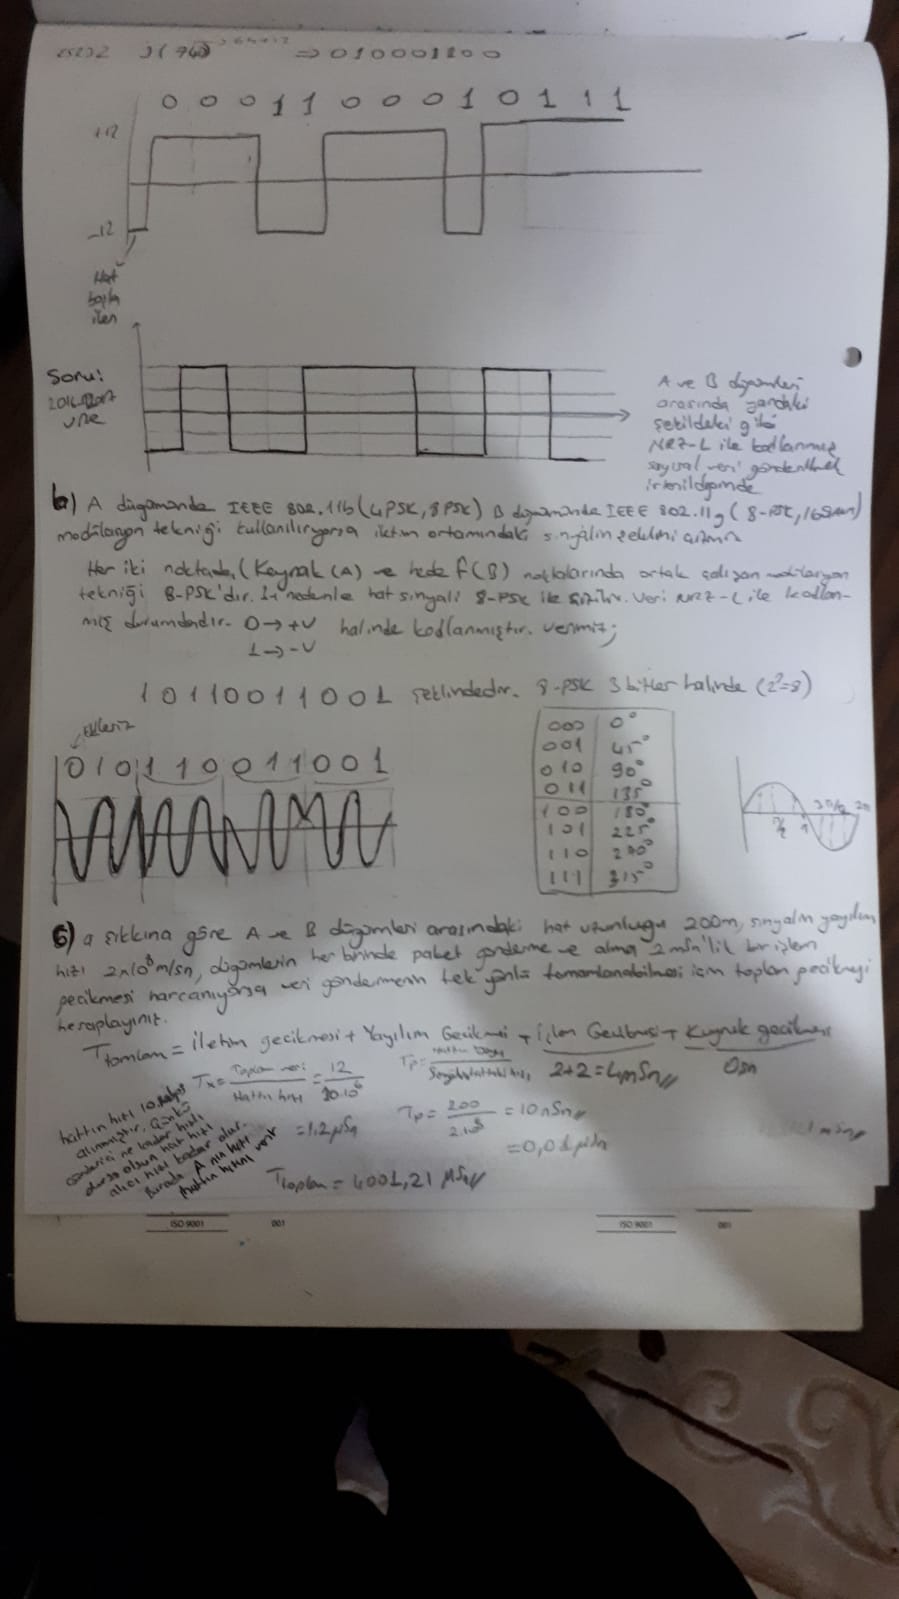 ⇒ 0100011000
0 0 0 1 1 0 0 0 1 0 1 1 1
+12
-12
Hat
boşta
iken
Soru:
vize
A ve B düğümleri
arasında yandaki
şekildeki gibi
NRZ-L ile kodlanmış
sayısal veri
b) A düğümünde IEEE 802.11b (4PSK, 8PSK) B düğümünde IEEE 802.11g (8-PSK,
modülasyon tekniği kullanılıyorsa iletim ortamındaki sinyalin şeklini çiziniz
Her iki noktada, (Kaynak (A) ve hedef (B) noktalarında ortak çalışan modülasyon
tekniği 8-PSK'dır. nedenle hat sinyali 8-PSK ile çizilir. Veri NRZ-L ile kodlan-
mış durumdadır. 0→+V halinde kodlanmıştır. verimiz;
1→-V
10110011001 şeklindedir. 8-PSK 3 bitler halinde (2³=8)
ekleriz
010110011001
000 0°
001 45°
010 90°
011 135°
100 180°
101 225°
110 270°
111 315°
π/2 π 3π/2 2π
a şıkkına göre A ve B düğümleri arasındaki hat uzunluğu 200m, sinyalin yayılım
hızı 2x10⁸m/sn, düğümlerin her birinde paket gönderme ve alma 2 msn'lik bir işlem
gecikmesi harcanıyorsa veri göndermenin tek yönlü tamamlanabilmesi için toplam gecikmeyi
hesaplayınız.
= İletim gecikmesi + Yayılım Gecikmesi + İşlem Gecikmesi + Kuyruk gecikmesi
Tx = Toplam veri / Hattın hızı = 12 / = 1.2 µSn
Tp = 2+2=4mSn 0sn
Tp = 200 / 2.10⁸ = 10nSn
= 0,01
hattın hızı
alınmıştır. Çünkü
gönderici ne kadar hızlı
olursa olsun hat hızı
alıcı hızı kadar olur.
Burada A nın hızı
hattın hızını verir
Ttoplam = 4001,21 µSn
ISO 9001 001 ISO 9001 001